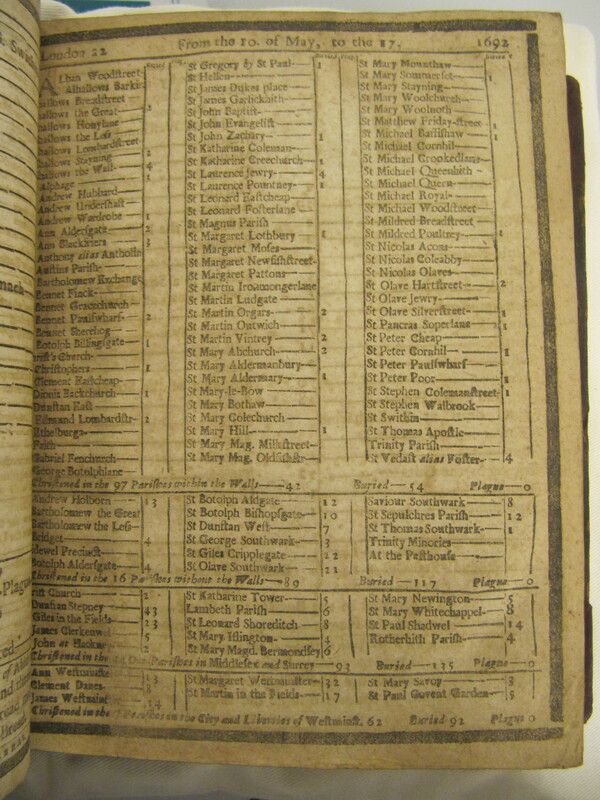 London 22 From the 10. of May, to the 17. 1692
Alban Woodstreet
Alhallows Barkin
allows Breadstreet
allows the Great 2
allows Honylane
allows the Less
allows Lombardstreet
allows Stayning 2
allows the Wall 4
Alphage 1
Andrew Hubbard
Andrew Undershaft
Andrew Wardrobe 1
Ann Aldersgate 2
Ann Blackfriers 3
Anthony alias Antholin
Austins Parish
Bartholomew Exchange
Bennet Finck
Bennet Gracechurch
Bennet Paulswharf 2
Bennet Sherehog
Botolph Billingsgate 1
rist's Church
Christophers 1
Clement Eastcheap
Dionis Backchurch 1
Dunstan East
Edmund Lombardstr 2
Ethelburga
Faith
Gabriel Fenchurch
George Botolphlane
St Gregory by St Paul 1
St Hellen
St James Dukes place
St James Garlickhith
St John Baptist
St John Evangelist
St John Zachary 1
St Katharine Coleman
St Katharine Creechurch 1
St Laurence Jewry 4
St Laurence Pountney 1
St Leonard Eastcheap
St Leonard Fosterlane
St Magnus Parish
St Margaret Lothbury 1
St Margaret Moses
St Margaret Newfishstreet
St Margaret Pattons
St Martin Ironmongerlane
St Martin Ludgate
St Martin Orgars 2
St Martin Outwich
St Martin Vintrey 2
St Mary Abchurch 2
St Mary Aldermanbury
St Mary Aldermary 1
St Mary-le-Bow
St Mary Bothaw
St Mary Colechurch
St Mary Hill 1
St Mary Mag. Milkstreet
St Mary Mag. Oldfishstr
St Mary Mounthaw
St Mary Sommerset 1
St Mary Stayning
St Mary Woolchurch
St Mary Woolnoth
St Matthew Friday-street 1
St Michael Bassishaw 1
St Michael Cornhil
St Michael Crookedlane
St Michael Queenhith
St Michael Quern
St Michael Royal
St Michael Woodstreet
St Mildred Breadstreet
St Mildred Poultney 1
St Nicolas Acons
St Nicolas Coleabby
St Nicolas Olaves
St Olave Hartstreet 2
St Olave Jewry
St Olave Silverstreet 1
St Pancras Soperlane 1
St Peter Cheap
St Peter Cornhil 1
St Peter Paulswharf
St Peter Poor 1
St Stephen Colemanstreet 1
St Stephen Walbrook
St Swithin
St Thomas Apostle
Trinity Parish
St Vedast alias Foster 4
Christened in the 97 Parishes within the Walls 42 Buried 54 Plague 0
Andrew Holborn 13
Bartholomew the Great
Bartholomew the Less
Bridget 4
dewel Precinct
Botolph Aldersgate 4
St Botolph Aldgate 12
St Botolph Bishopsgate 10
St Dunstan West 7
St George Southwark 3
St Giles Cripplegate 22
St Olave Southwark 21
Saviour Southwark 8
St Sepulchres Parish 12
St Thomas Southwark 1
Trinity Minories
At the Pesthouse
Christened in the 16 Parishes without the Walls 89 Buried 117 Plague 0
rist Church 2
Dunstan Stepney 43
Giles in the Fields 23
James Clerkenwel 5
John at Hackney 2
St Katharine Tower 5
Lambeth Parish 6
St Leonard Shoreditch 8
St Mary Islington 4
St Mary Magd. Bermondsey 6
St Mary Newington 5
St Mary Whitechappel 8
St Paul Shadwel 14
Rotherhith Parish 4
Christened in the Out-Parishes in Middlesex and Surrey 93 Buried 135 Plague 0
Ann Westminster 13
Clement Danes 8
James Westminst 14
St Margaret Westminster 32
St Martin in the Fields 17
St Mary Savoy 3
St Paul Covent Garden 5
Christened in the 7 Parishes in the City and Liberties of Westminst. 62 Buried 92 Plague 0